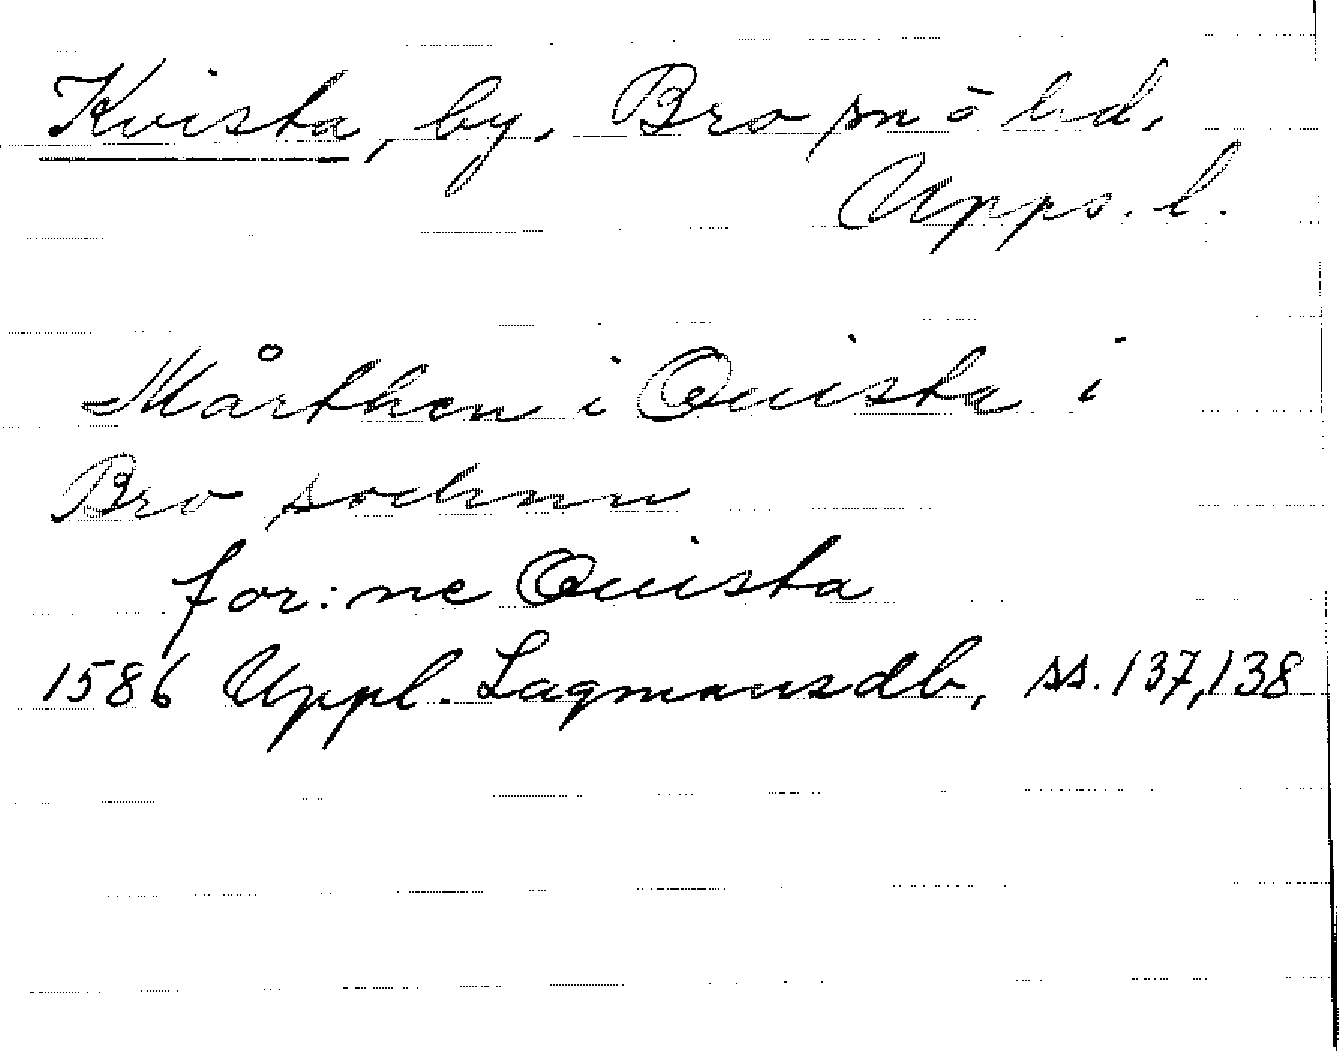 Kvista, by, Bro sn ō hd,
Upps. l.
Mårthen i Quista i
Bro sochnn
for:ne Quista
1586 Uppl. Lagmansdb, ss. 137, 138